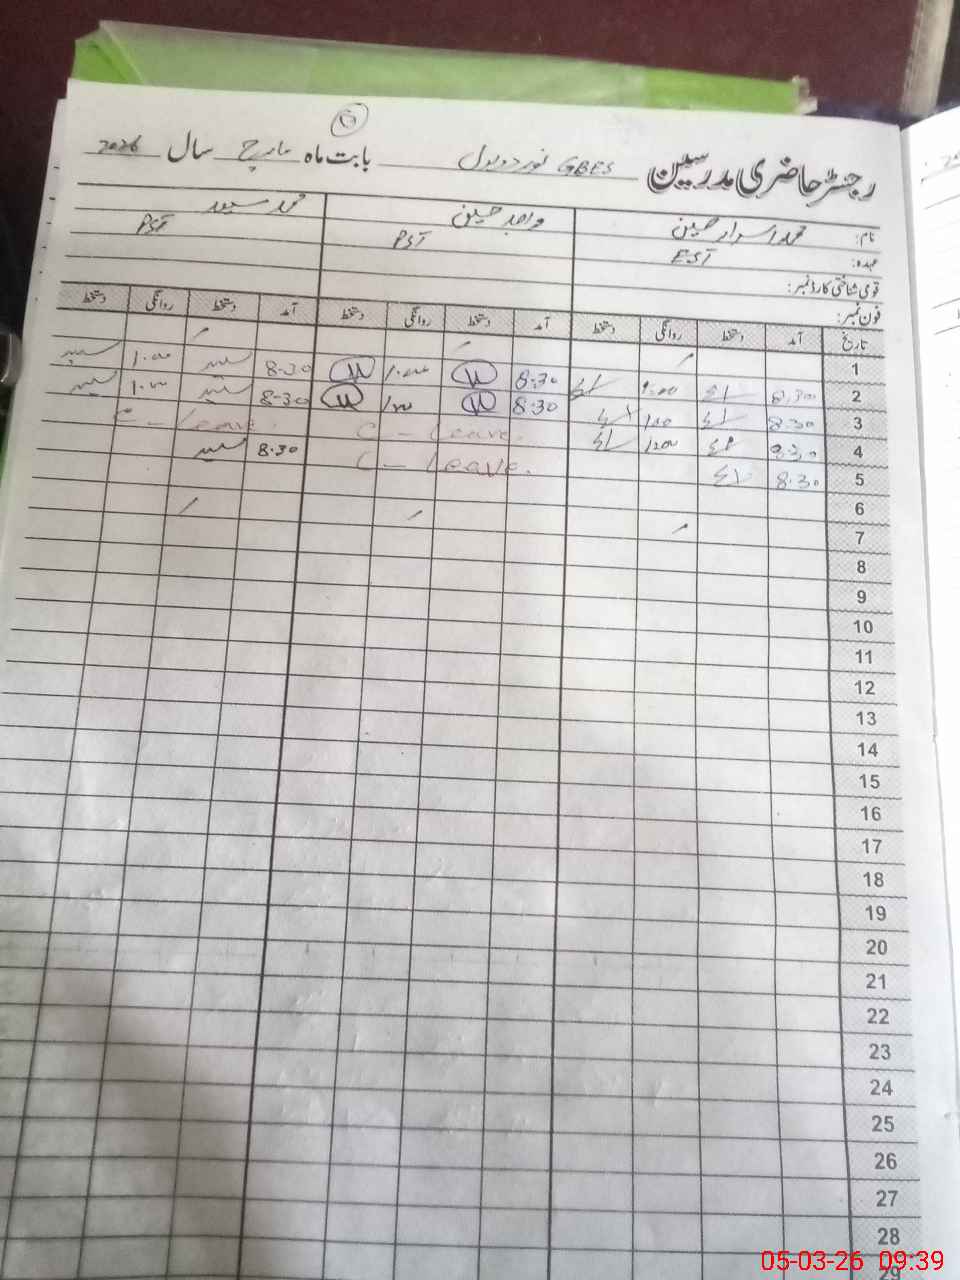 6
رجسٹر حاضری مدرسین GBES بابت ماہ مارچ سال 2026
نام: محمد اسرار حسین واجد حسین محمد سعید
عہدہ: EST PST PST
قومی شناختی کارڈ نمبر:
فون نمبر:
تاریخ آمد دستخط روانگی دستخط آمد دستخط روانگی دستخط آمد دستخط روانگی دستخط
1
2 8.30 1:00 8.30 1:00 8-30 1:00
3 8.30 1:00 8:30 1:00 8-30 1:00
4 8.30 1:00 C - Leave. C - Leave.
5 8.30 C - Leave. 8.30
6
7
8
9
10
11
12
13
14
15
16
17
18
19
20
21
22
23
24
25
26
27
28
29
05-03-26 09:39